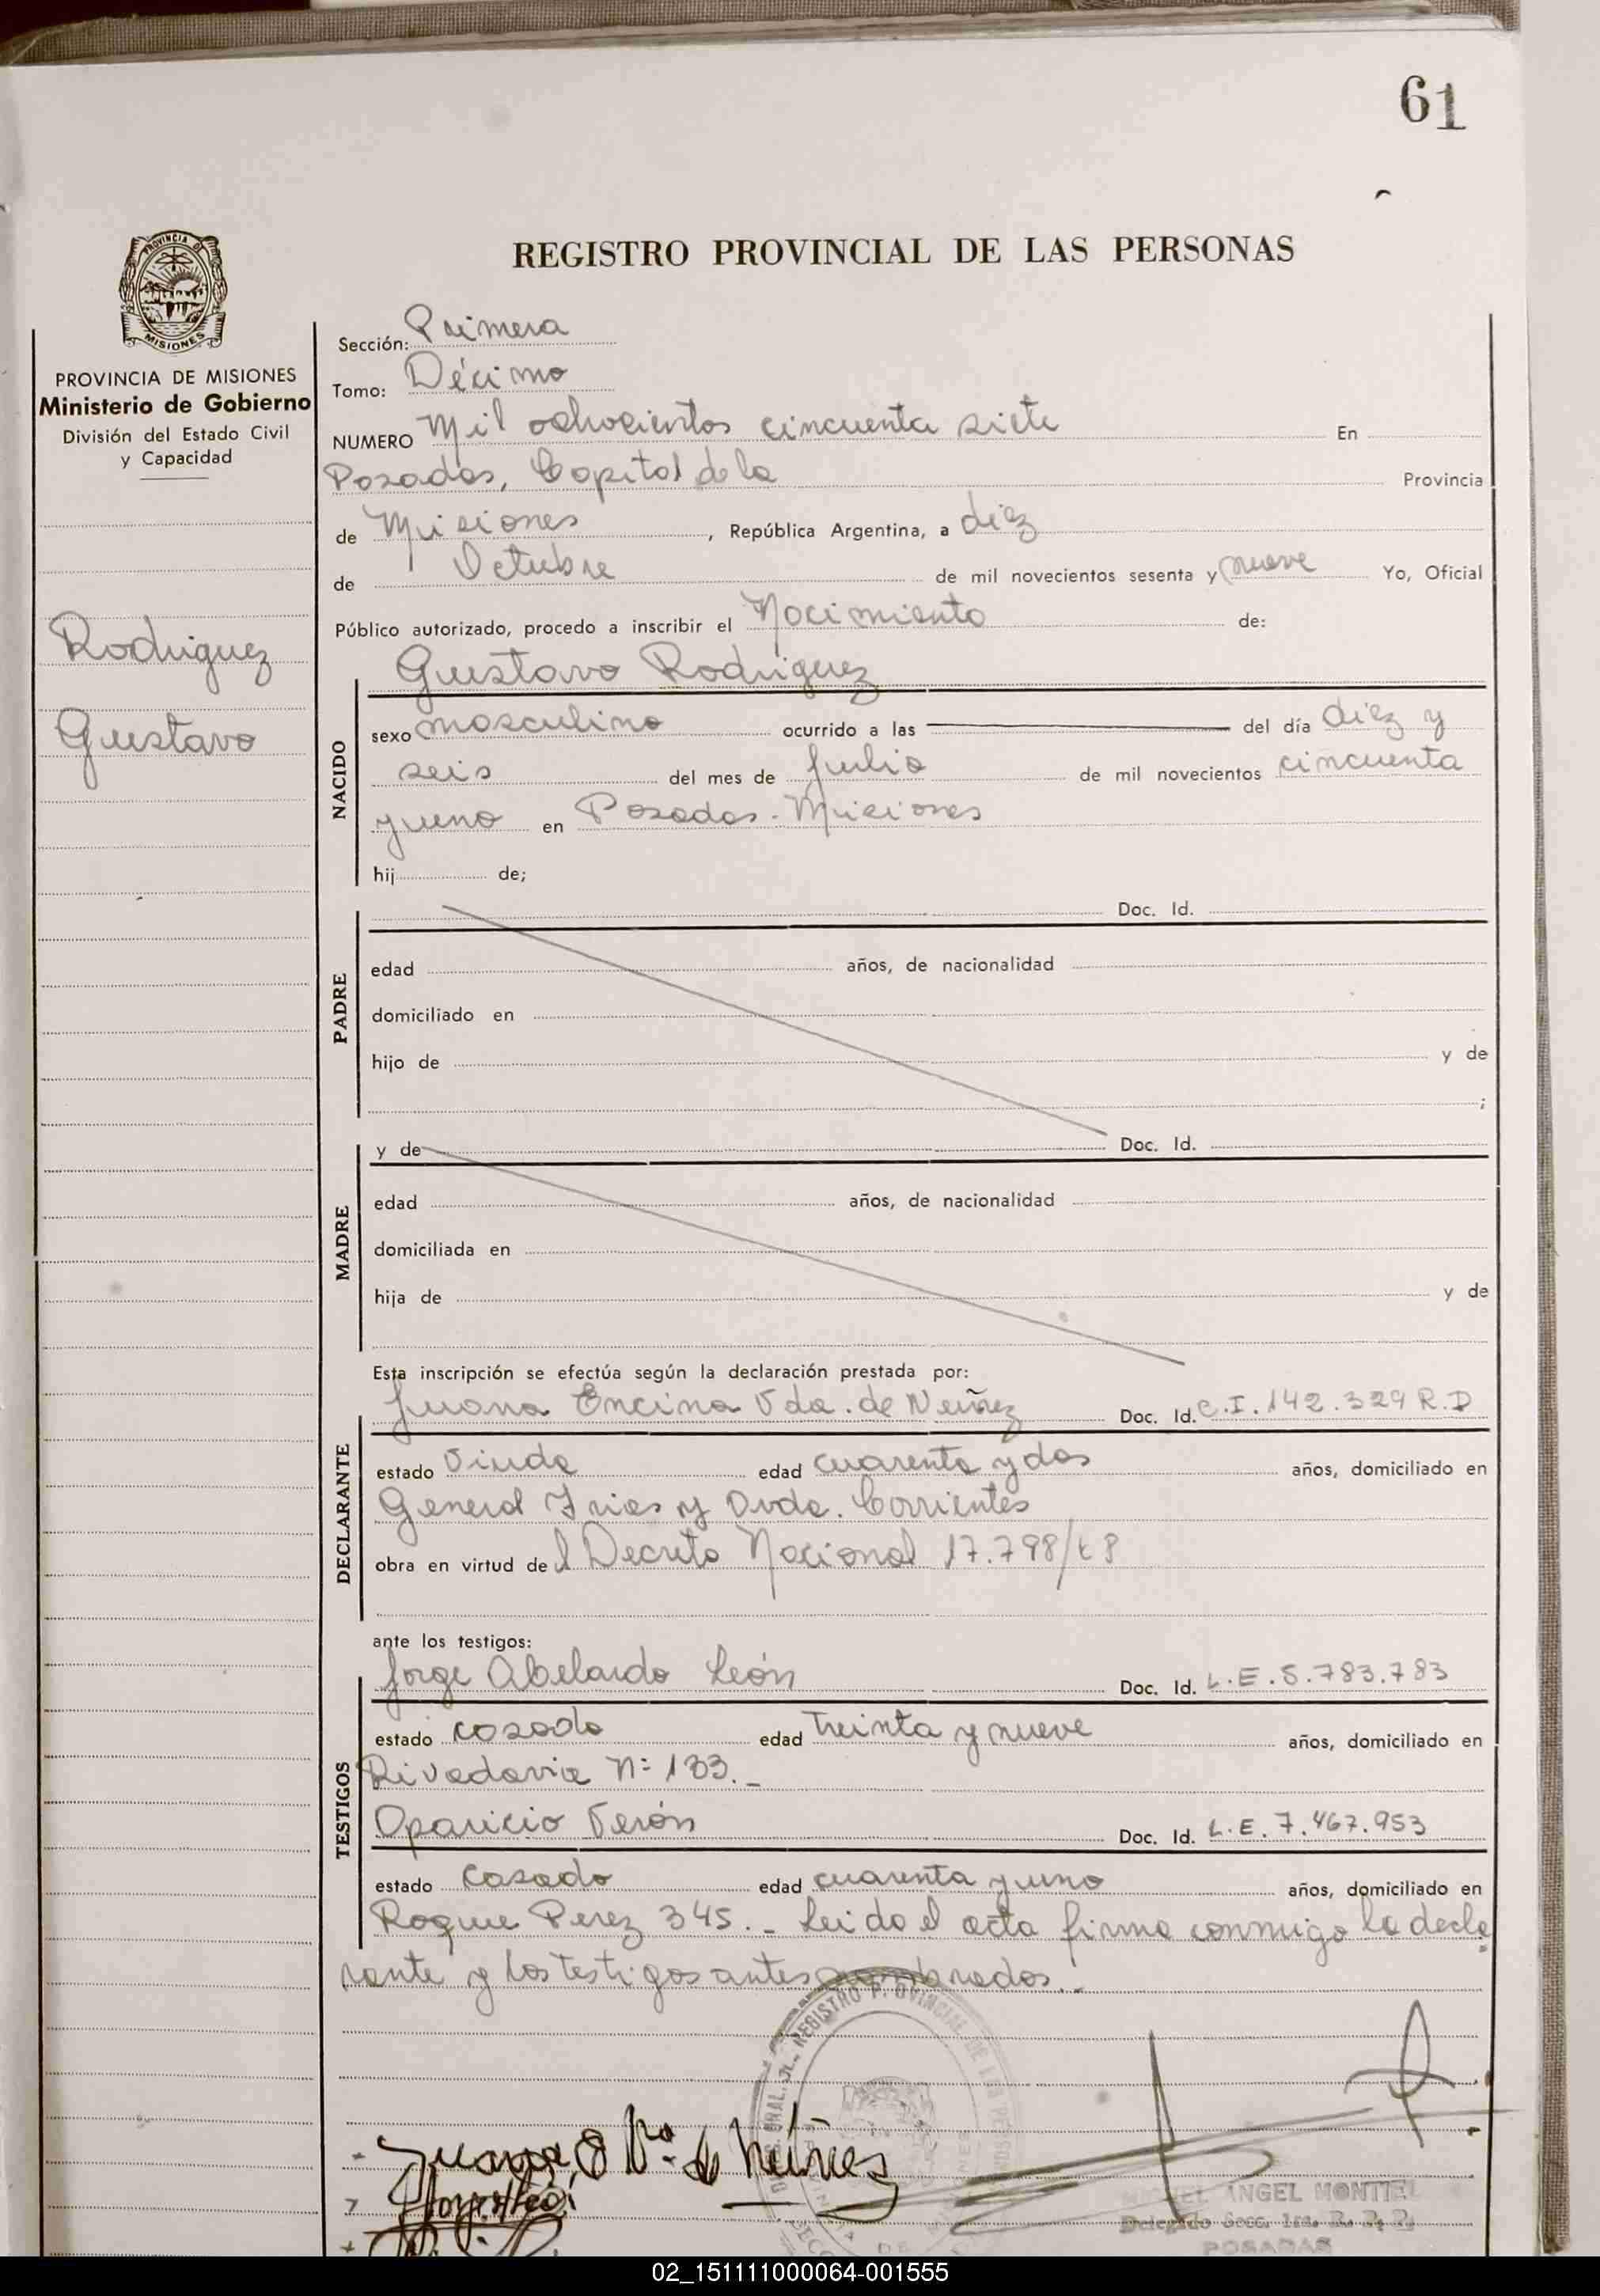 61
REGISTRO PROVINCIAL DE LAS PERSONAS
PROVINCIA DE MISIONES
PROVINCIA DE MISIONES
Ministerio de Gobierno
División del Estado Civil
y Capacidad
Rodriguez
Gustavo
Sección: Primera
Tomo: Décimo
NUMERO Mil ochocientos cincuenta siete En
Posadas, Capital de la Provincia
de Misiones, República Argentina, a diez
de Octubre de mil novecientos sesenta y nueve Yo, Oficial
Público autorizado, procedo a inscribir el Nacimiento de:
Gustavo Rodriguez
NACIDO
sexo masculino ocurrido a las del día diez y
seis del mes de Julio de mil novecientos cincuenta
y uno en Posadas - Misiones
hij de;
PADRE
Doc. Id.
edad años, de nacionalidad
domiciliado en
hijo de y de
;
MADRE
y de Doc. Id.
edad años, de nacionalidad
domiciliada en
hija de y de
Esta inscripción se efectúa según la declaración prestada por:
DECLARANTE
Juana Encina Vda. de Nuñez Doc. Id. C.I. 142.329 R.D
estado Viuda edad cuarenta y dos años, domiciliado en
General Frias y Avda. Corrientes
obra en virtud de l Decreto Nacional 17.798/68
ante los testigos:
TESTIGOS
Jorge Abelardo León Doc. Id. L.E. 5.783.783
estado casado edad treinta y nueve años, domiciliado en
Rivadavia Nº 133._
Aparicio Verón Doc. Id. L.E. 7.467.953
estado casado edad cuarenta y uno años, domiciliado en
Roque Perez 345._ Leido el acta firma conmigo la decla
rante y los testigos antes nombrados._
REGISTRO PROVINCIAL DE LAS PERSONAS
Juana E Vda. de Nuñes
MIGUEL ANGEL MONTIEL
Delegado Secc. 1ra. R. P. P.
POSADAS
02_151111000064-001555